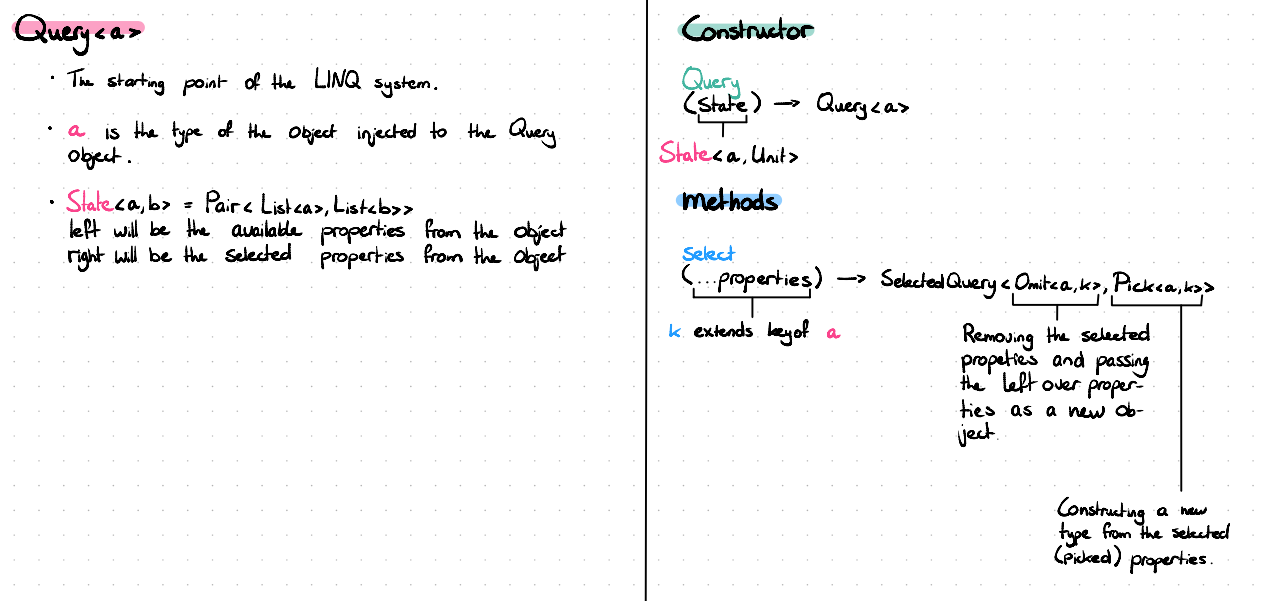 Query<a>
• The starting point of the LINQ system.
• a is the type of the object injected to the Query
object.
• State<a,b> = Pair< List<a>, List<b>>
left will be the available properties from the object
right will be the selected properties from the object
Constructor
Query
(State) → Query<a>
State<a, Unit>
Methods
Select
(...properties) → SelectedQuery<Omit<a,k>, Pick<a,k>>
k extends keyof a
Removing the selected
propeties and passing
the left over proper-
ties as a new ob-
ject.
Constructing a new
type from the selected
(picked) properties.